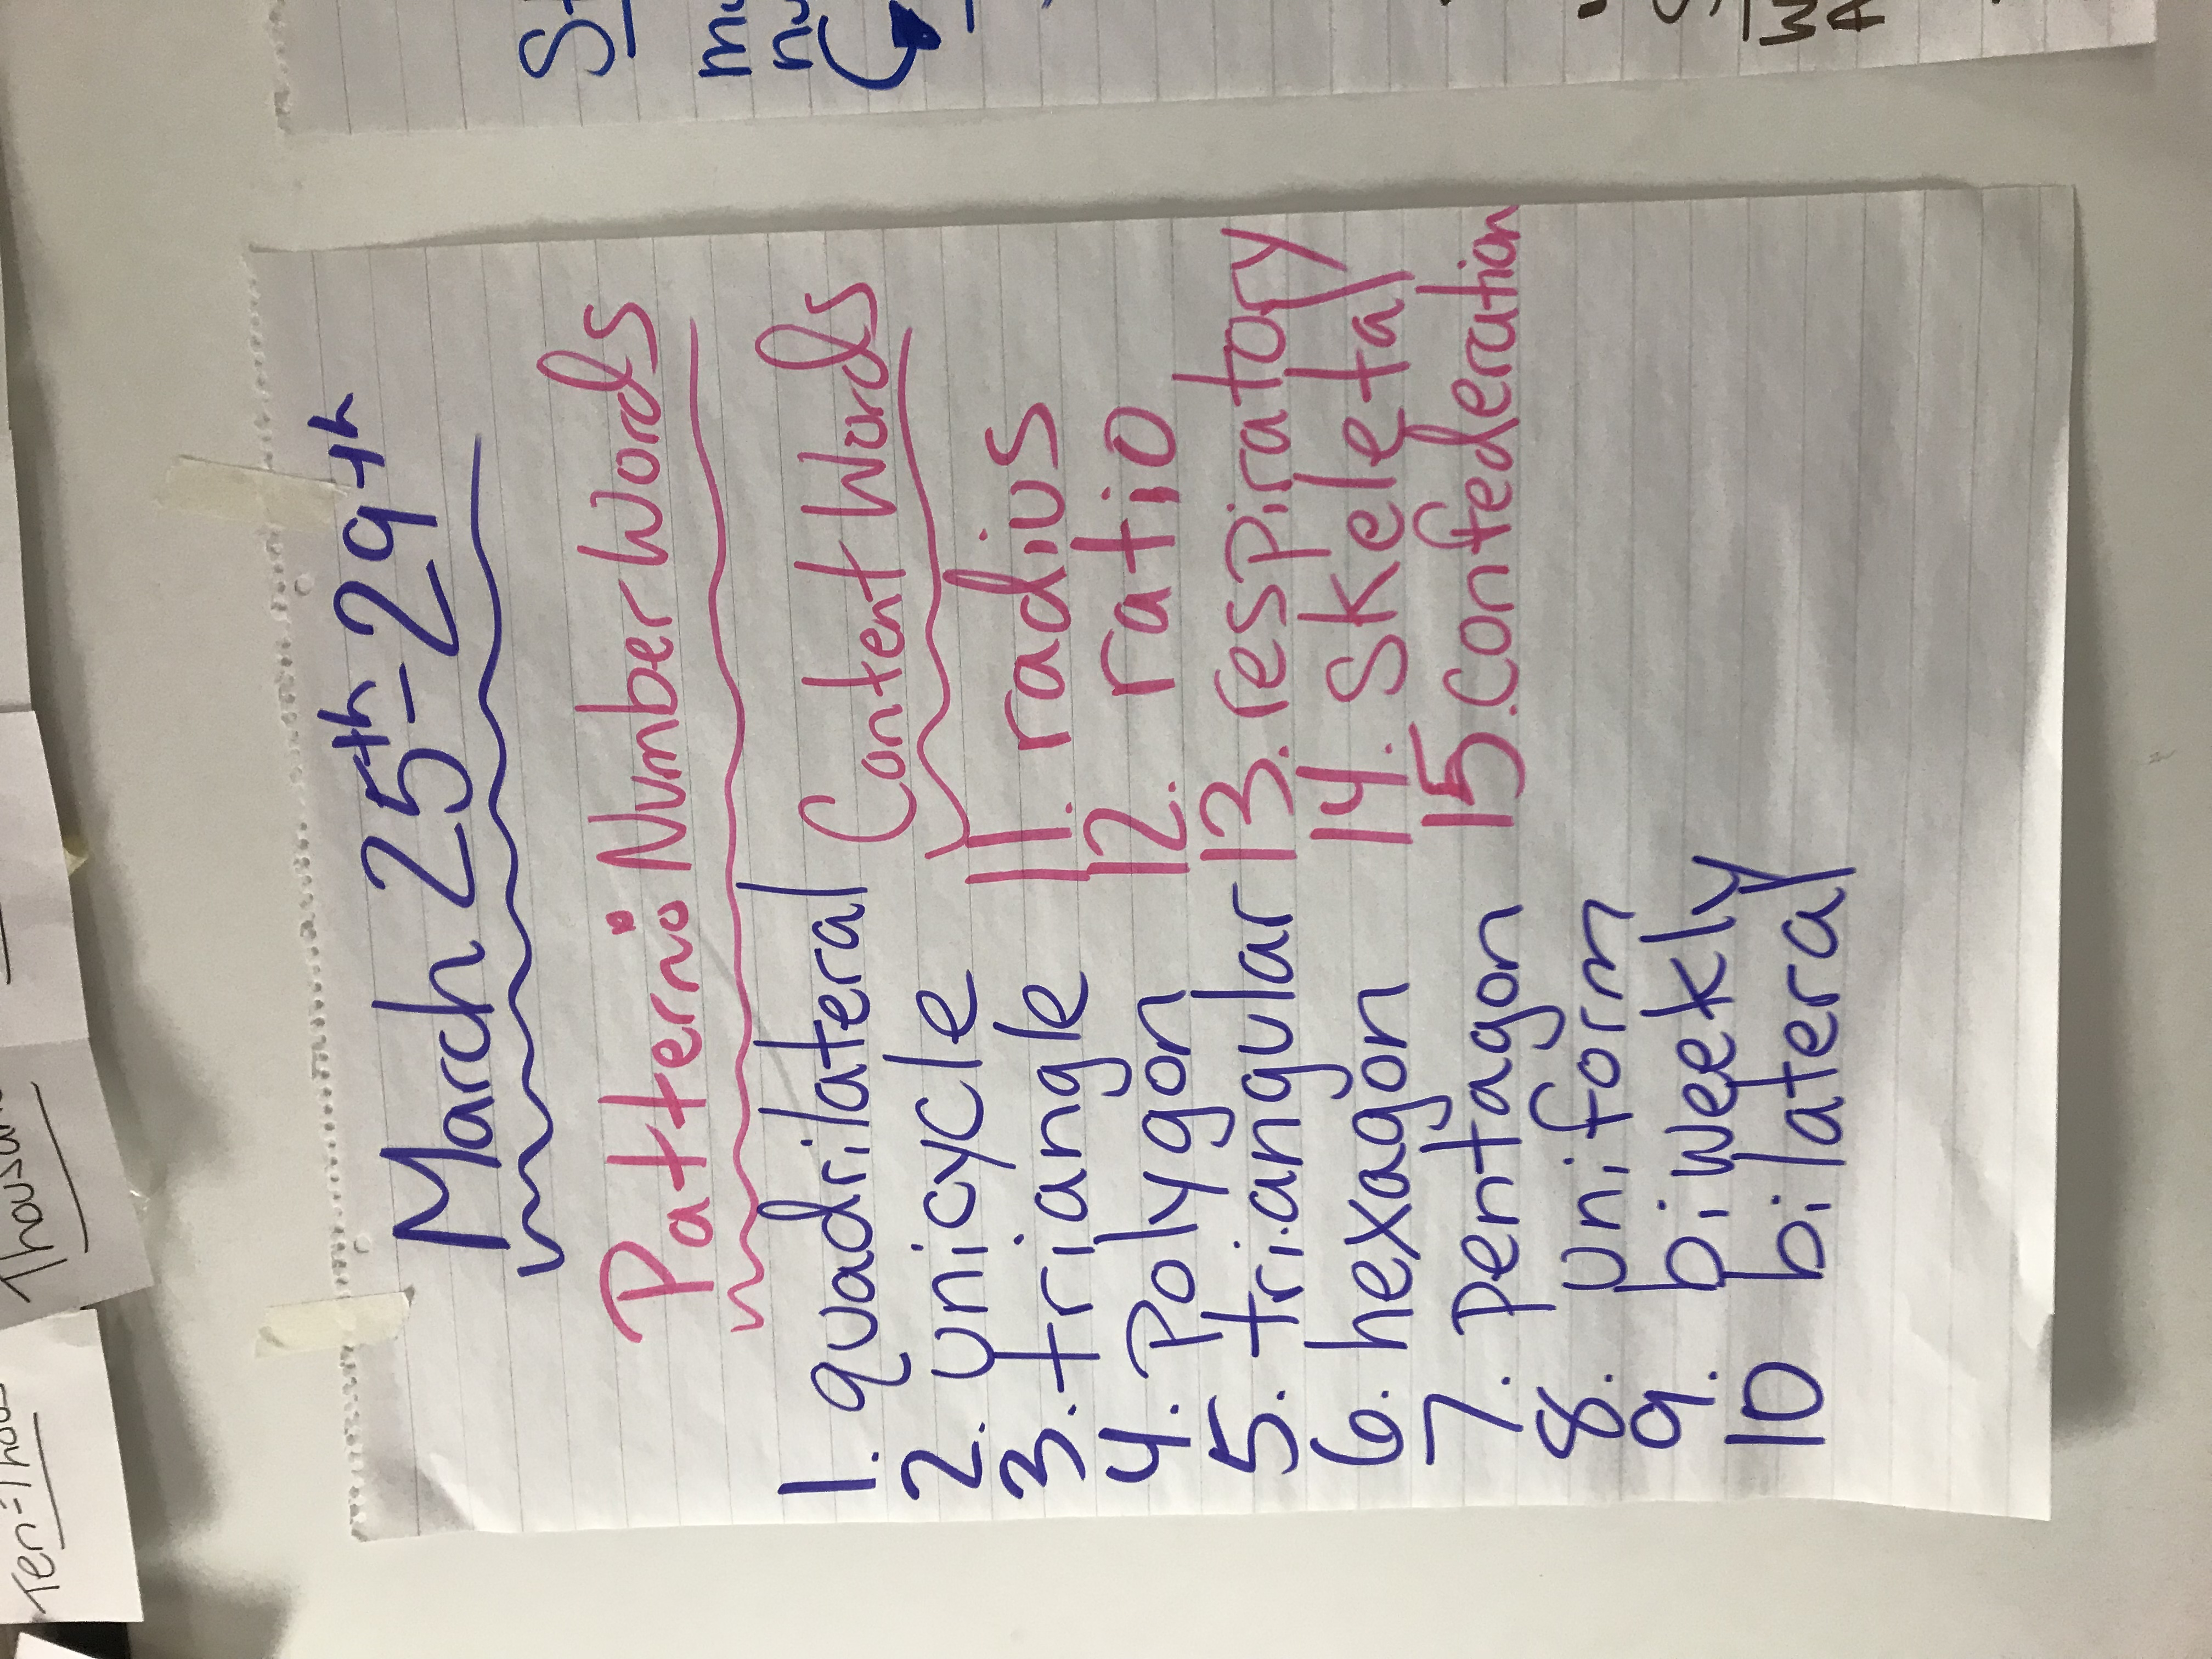 March 25th-29th
Pattern: Number Words
1. quadrilateral
2. unicycle
3. triangle
4. Polygon
5. triangular
6. hexagon
7. pentagon
8. uniform
9. biweekly
10 bilateral
Content Words
11. radius
12. ratio
13. respiratory
14. Skeletal
15. Confederation